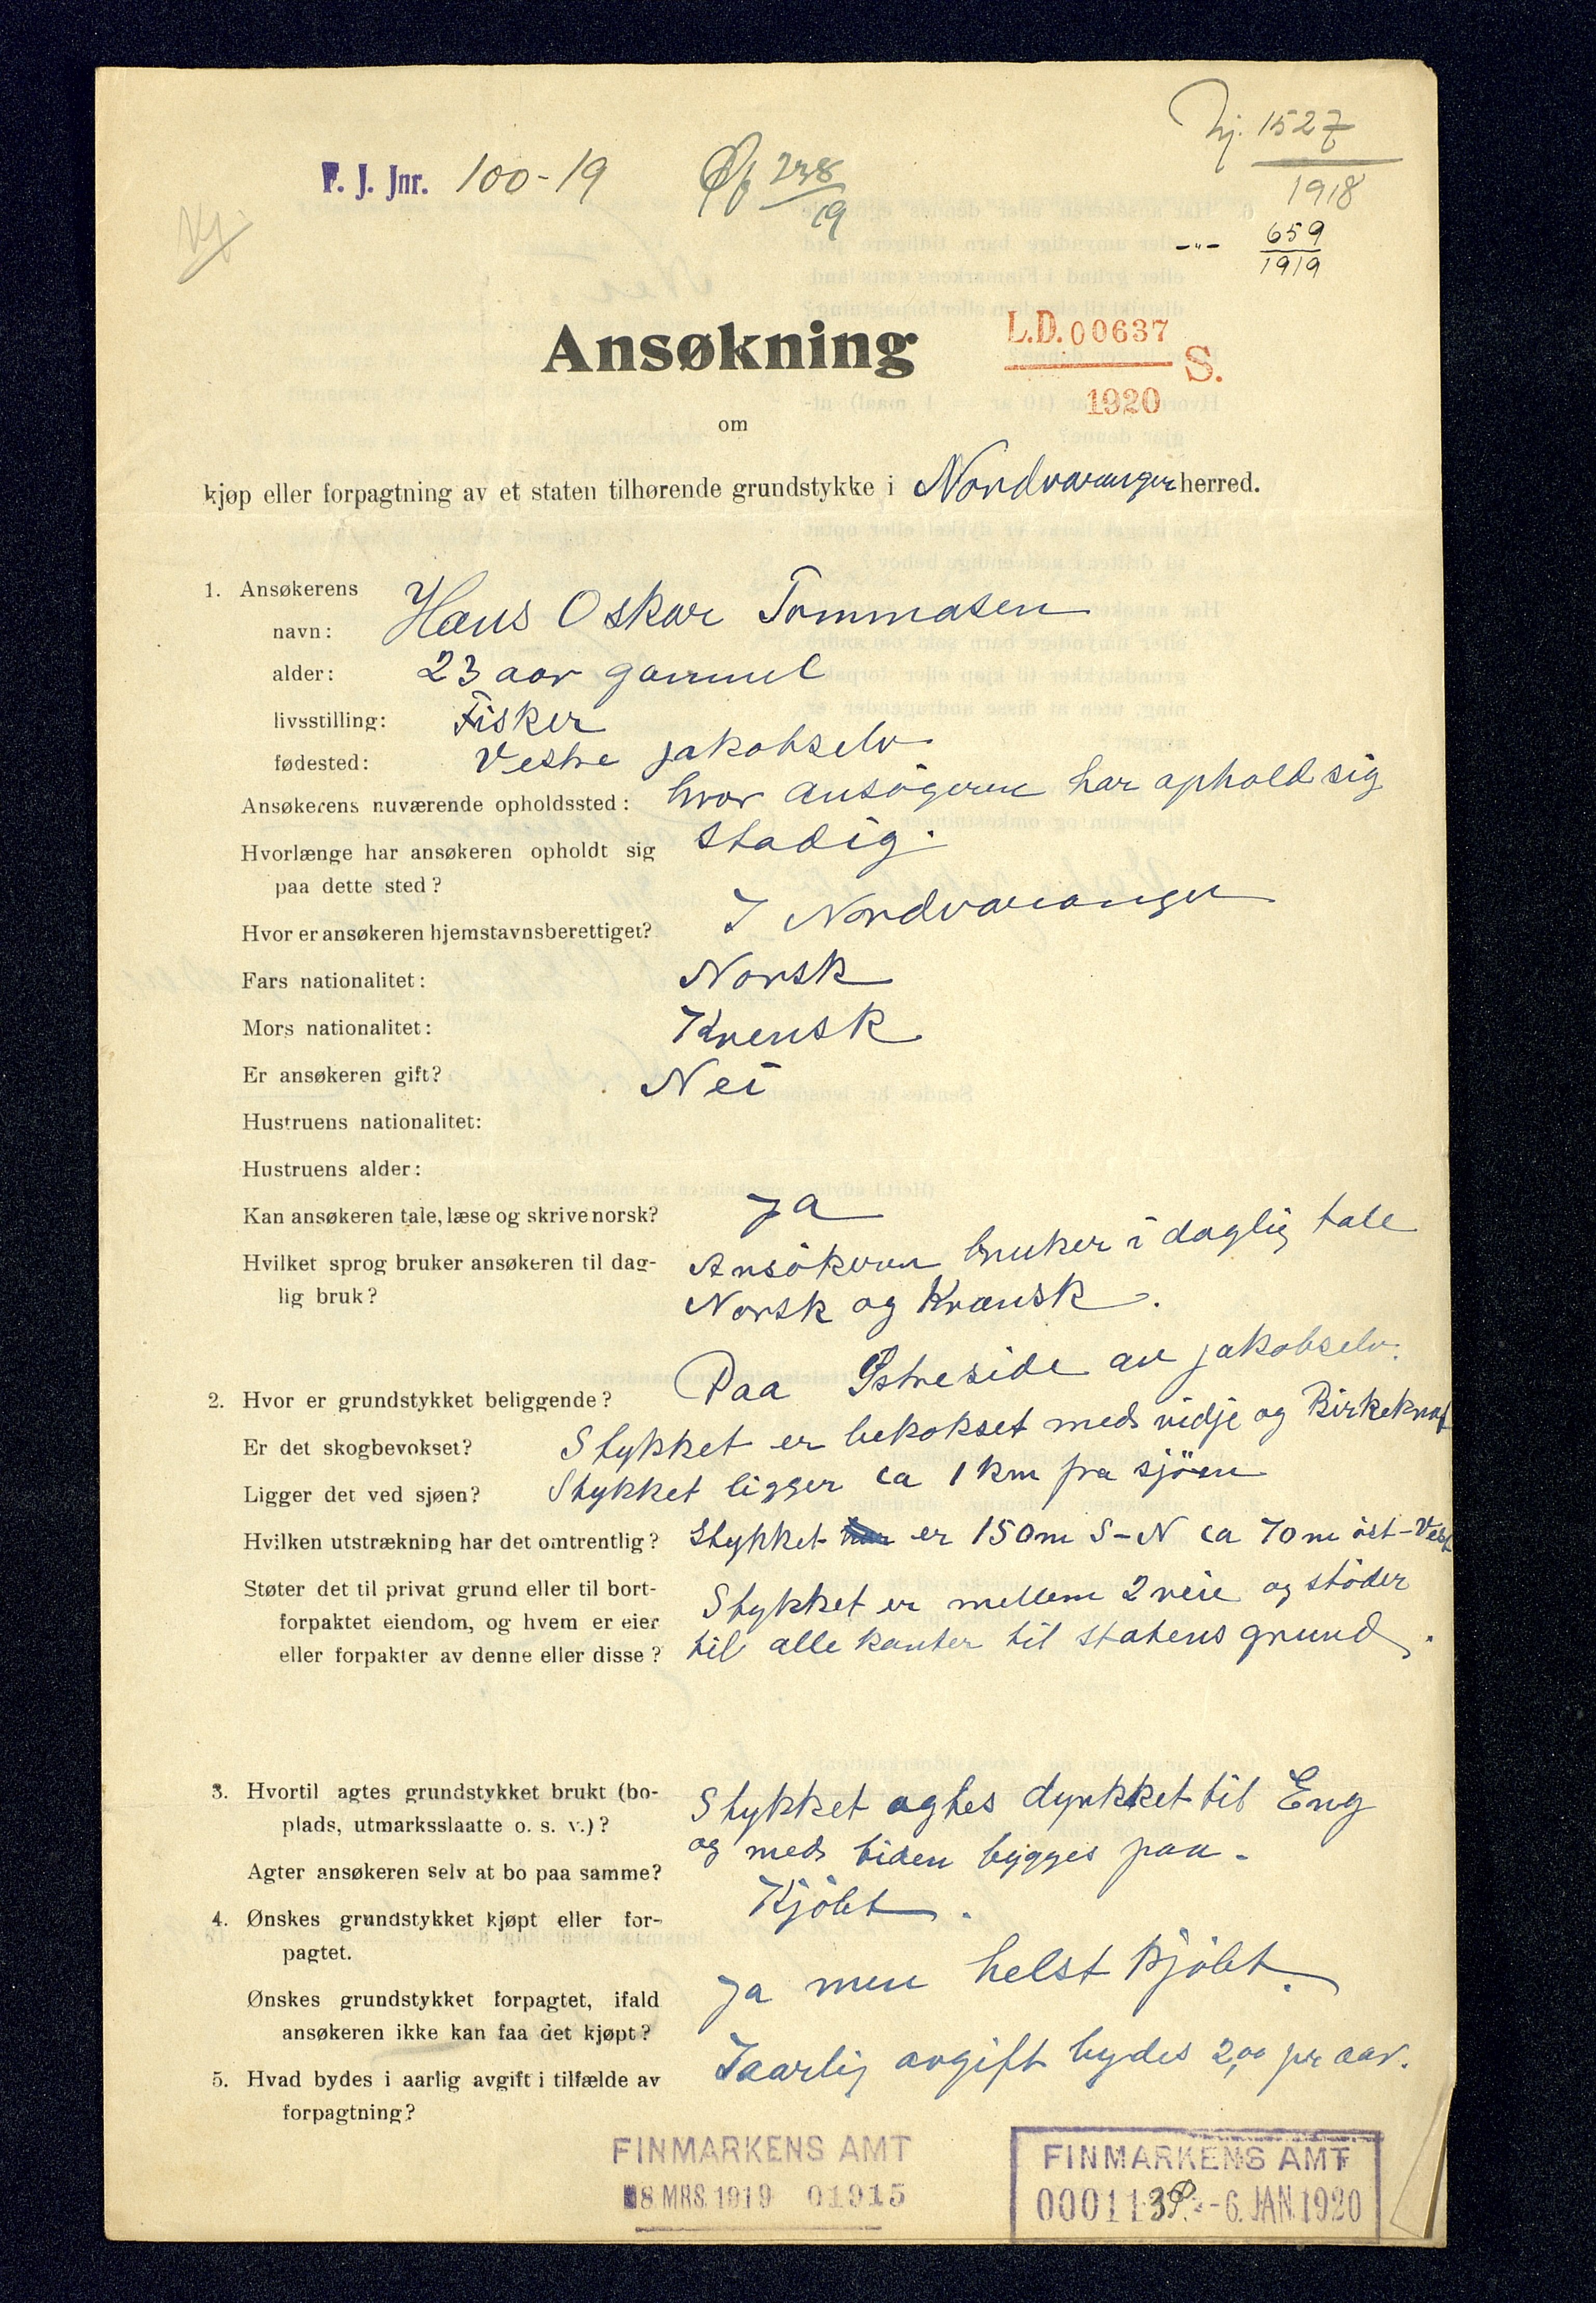 F. J. Jnr. 100-19
Hj. 1527
1918
238
19
-"- 659
1919
Ansøkning
L.D. 00637 S.
1920
om
kjøp eller forpagtning av et staten tilhørende grundstykke i Nordvaranger herred.
1. Ansøkerens
navn: Hans Oskar Tommasen
alder: 23 aar gammel
livsstilling: Fisker
fødested: Vestre jakobselv
Ansøkerens nuværende opholdssted: hvor ansøgeren har ophold sig
Hvorlænge har ansøkeren opholdt sig stadig.
paa dette sted?
Hvor er ansøkeren hjemstavnsberettiget? I Nordvaranger
Fars nationalitet: Norsk
Mors nationalitet: Kvensk
Er ansøkeren gift? Nei
Hustruens nationalitet:
Hustruens alder:
Kan ansøkeren tale, læse og skrive norsk? Ja
Hvilket sprog bruker ansøkeren til dag- Ansökeren bruker i daglig tale
lig bruk? Norsk og Kvænsk.
2. Hvor er grundstykket beliggende? Paa Østreside av jakobselv.
Er det skogbevokset? Stykket er bekokset meds vidje og Birkekrat
Ligger det ved sjøen? Stykket ligger ca 1 km fra sjöen
Hvilken utstrækning har det omtrentlig? Stykket er 150m S-N ca 70m öst-Vest
Støter det til privat grund eller til bort- Stykket er mellem 2 veie og stöder
forpaktet eiendom, og hvem er eier
eller forpakter av denne eller disse? til alle kanter til statens grund.
3. Hvortil agtes grundstykket brukt (bo- Stykket agtes dyrkket til Eng
plads, utmarksslaatte o. s. v.)?
og meds tiden bygges paa.
Agter ansøkeren selv at bo paa samme?
4. Ønskes grundstykket kjøpt eller for- Kjöbt.
pagtet.
Ønskes grundstykket forpagtet, ifald Ja men helst kjöbt.
ansøkeren ikke kan faa det kjøpt?
5. Hvad bydes i aarlig avgift i tilfælde av Iaarlig avgift bydes 2,00 pr aar.
forpagtning?
FINMARKENS AMT
8 MRS. 1919 01915
FINMARKENS AMT
00011 -6. JAN. 1920